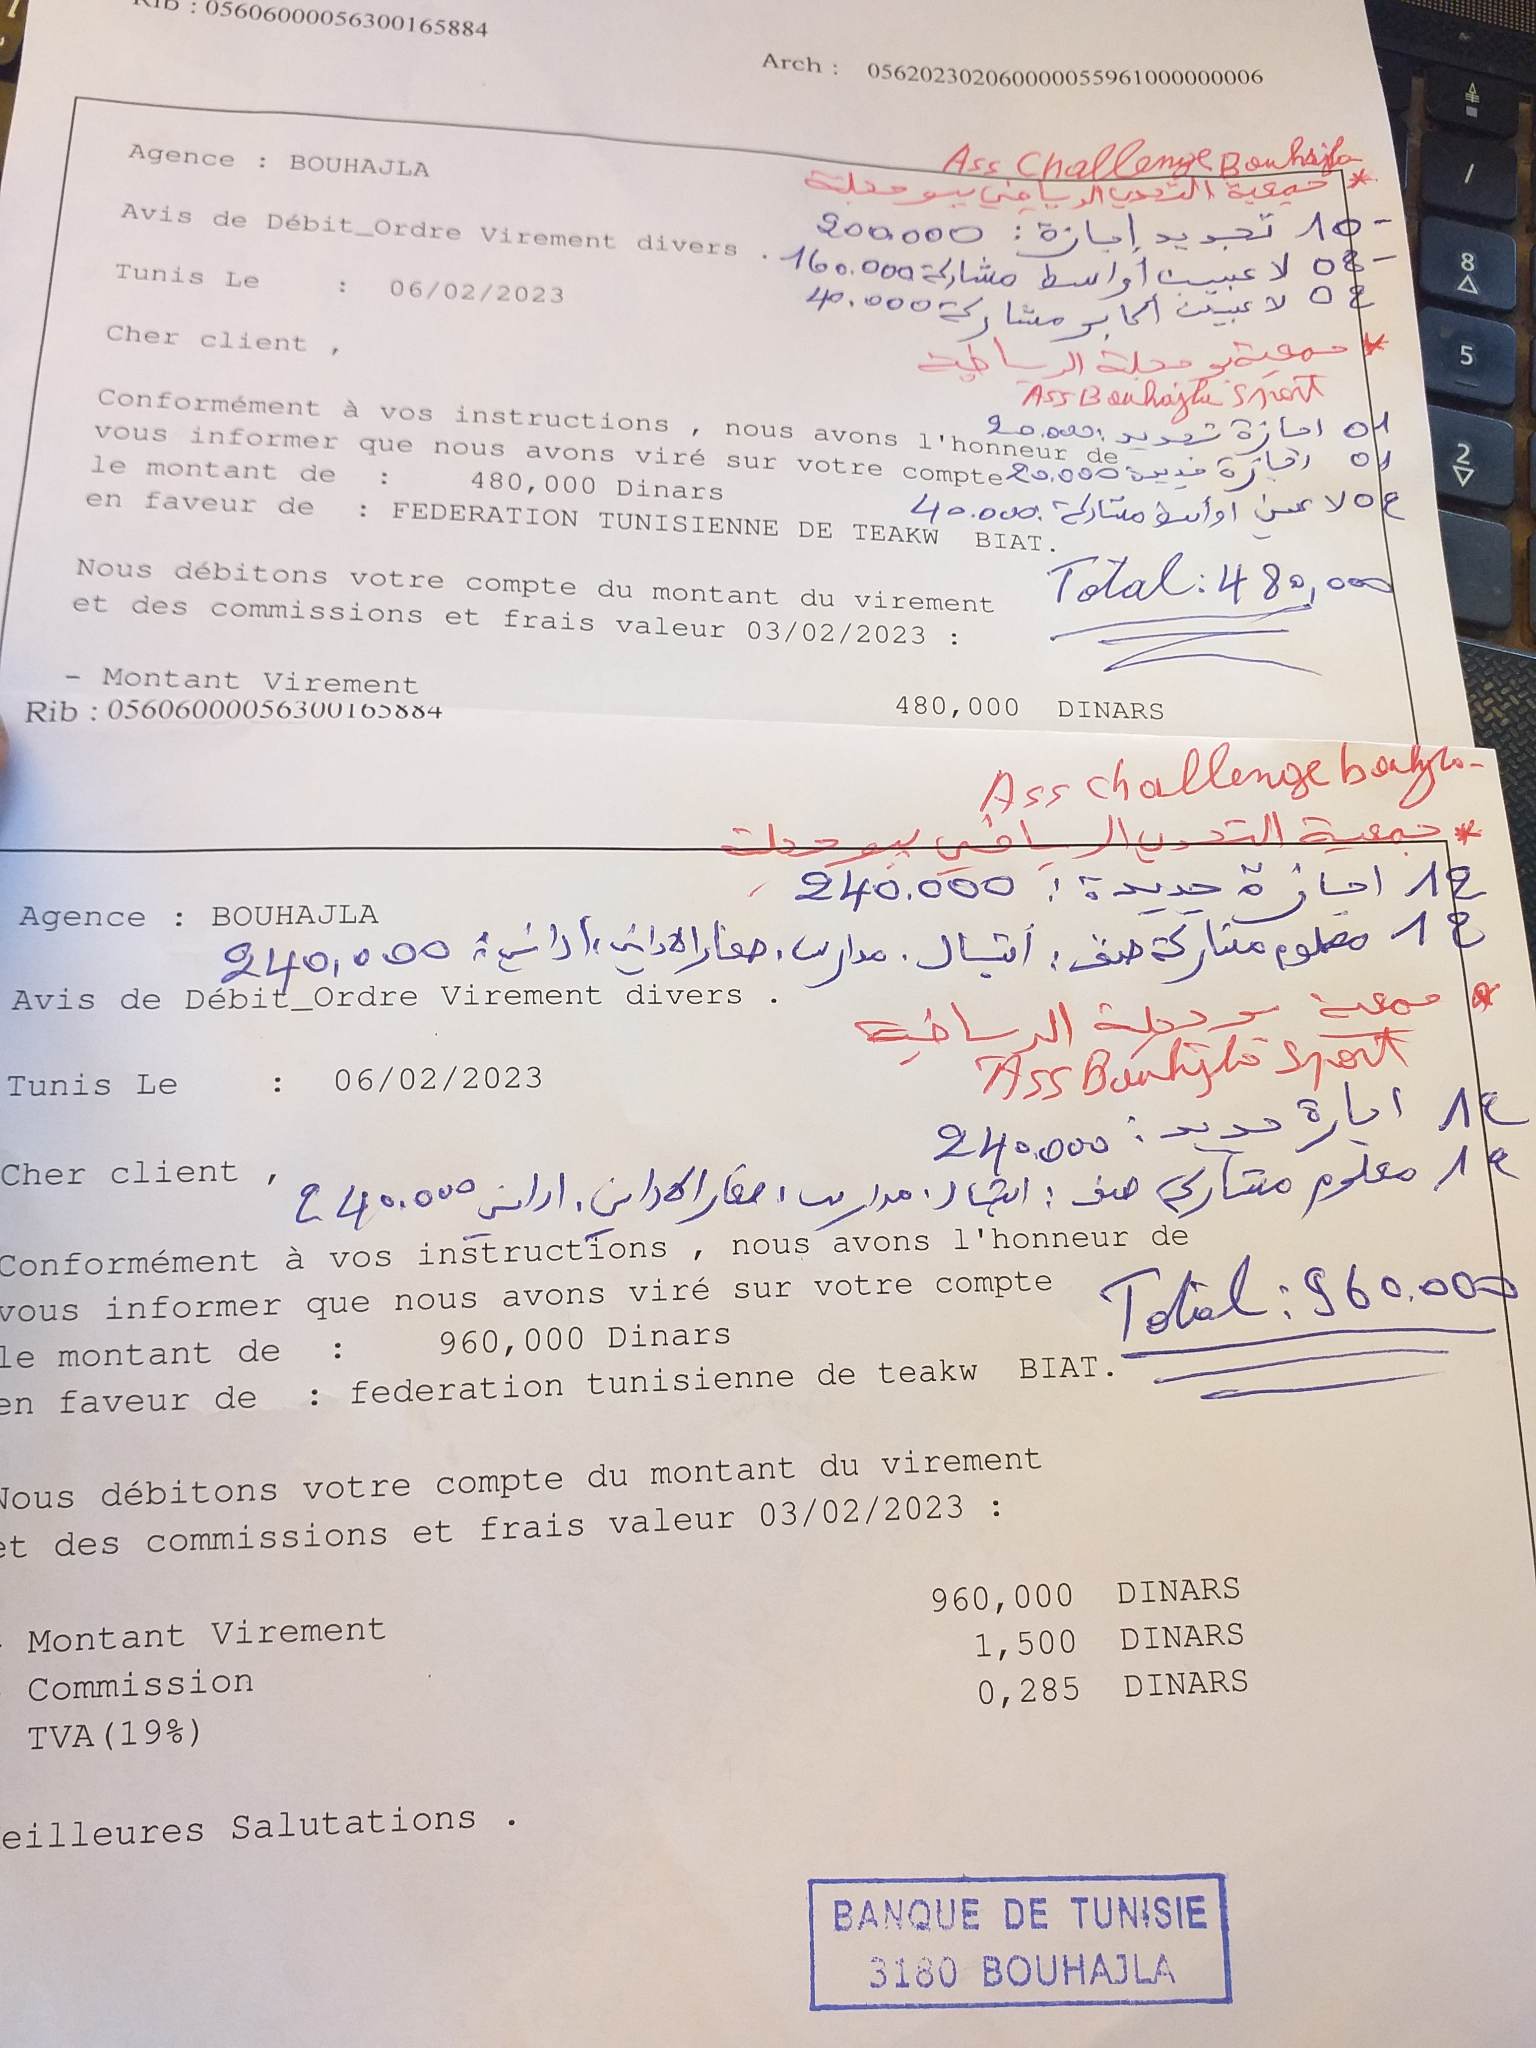 Rib : 05606000056300165884
Arch : 056202302060000055961000000006
Ass Challenge Bouhajla
* جمعية التحدي الرياضي ببوحجلة
Agence : BOUHAJLA
- 10 تجديد إجازة : 200.000
Avis de Débit_Ordre Virement divers .
- 08 لاعبين أواسط مشاركة 160.000
Tunis Le : 06/02/2023
02 لاعبين أكابر مشاركة 40.000
Cher client ,
* جمعية بوحجلة الرياضية
Ass Bouhajla Sport
Conformément à vos instructions , nous avons l'honneur de
01 اجازة تجديد : 20.000
vous informer que nous avons viré sur votre compte
01 اجازة جديدة 20.000
le montant de : 480,000 Dinars
02 لاعبين اواسط مشاركة : 40.000
en faveur de : FEDERATION TUNISIENNE DE TEAKW BIAT.
Total : 480,000
Nous débitons votre compte du montant du virement
et des commissions et frais valeur 03/02/2023 :
- Montant Virement 480,000 DINARS
Rib : 05606000056300165884
Ass challenge bouhjla
* جمعية التحدي الرياضي ببوحجلة
12 اجازة جديدة : 240.000
Agence : BOUHAJLA
12 معلوم مشاركة صنف : أشبال . مدارس . أصاغر : 240,000
Avis de Débit_Ordre Virement divers .
* جمعية بوحجلة الرياضية
Ass Bouhjla Sport
Tunis Le : 06/02/2023
12 اجازة جديد : 240.000
Cher client ,
12 معلوم مشاركة صنف : اشبال . مدارس 240.000
Conformément à vos instructions , nous avons l'honneur de
vous informer que nous avons viré sur votre compte
Total : 960.000
le montant de : 960,000 Dinars
en faveur de : federation tunisienne de teakw BIAT.
Nous débitons votre compte du montant du virement
et des commissions et frais valeur 03/02/2023 :
- Montant Virement 960,000 DINARS
Commission 1,500 DINARS
TVA(19%) 0,285 DINARS
eilleures Salutations .
BANQUE DE TUNISIE
3180 BOUHAJLA
/
8
5
2